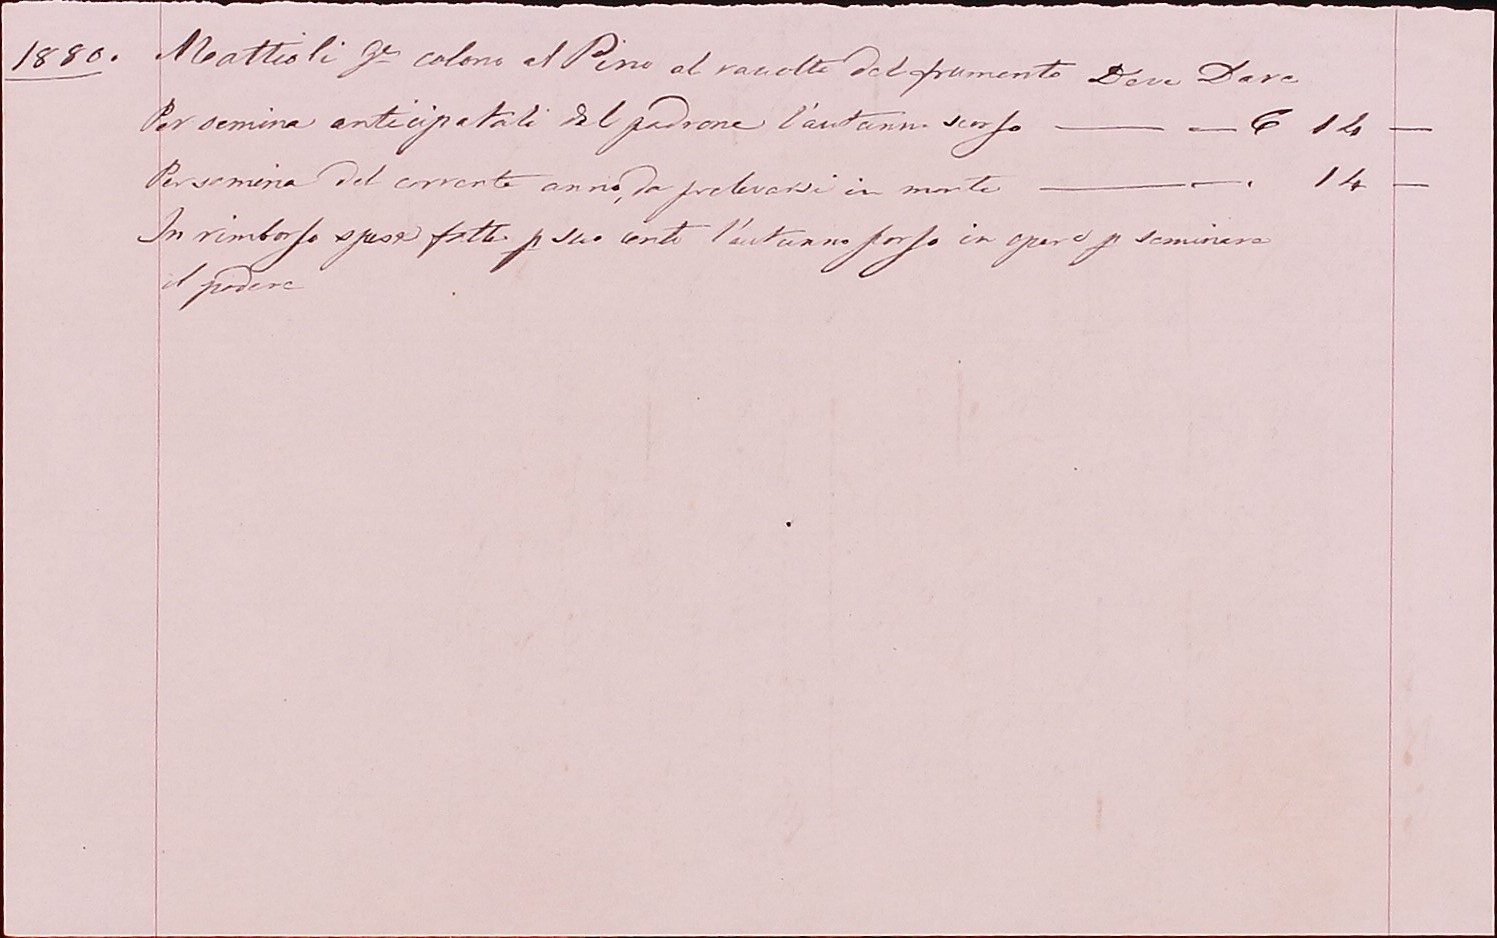 1880. Mattioli Ge colono al Pino al raccolto del frumento Deve Dare
Per semina anticipatali dal padrone l'autunno scorso — — C 14 —
Per semina del corrente anno, da prelevarsi in monte — — . 14 —
In rimborso spese fatte p suo conto l'autunno scorso in opere p seminare
il podere